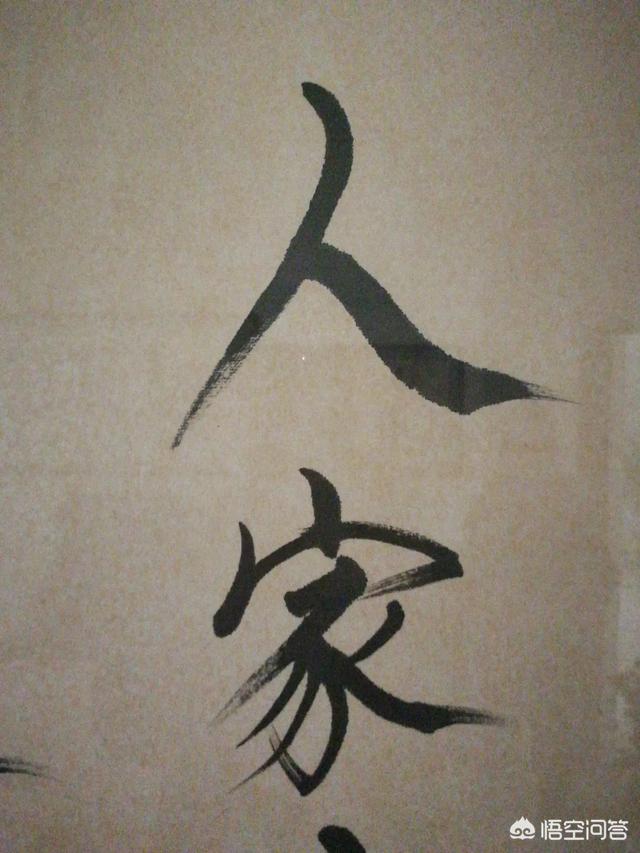 人家
悟空问答